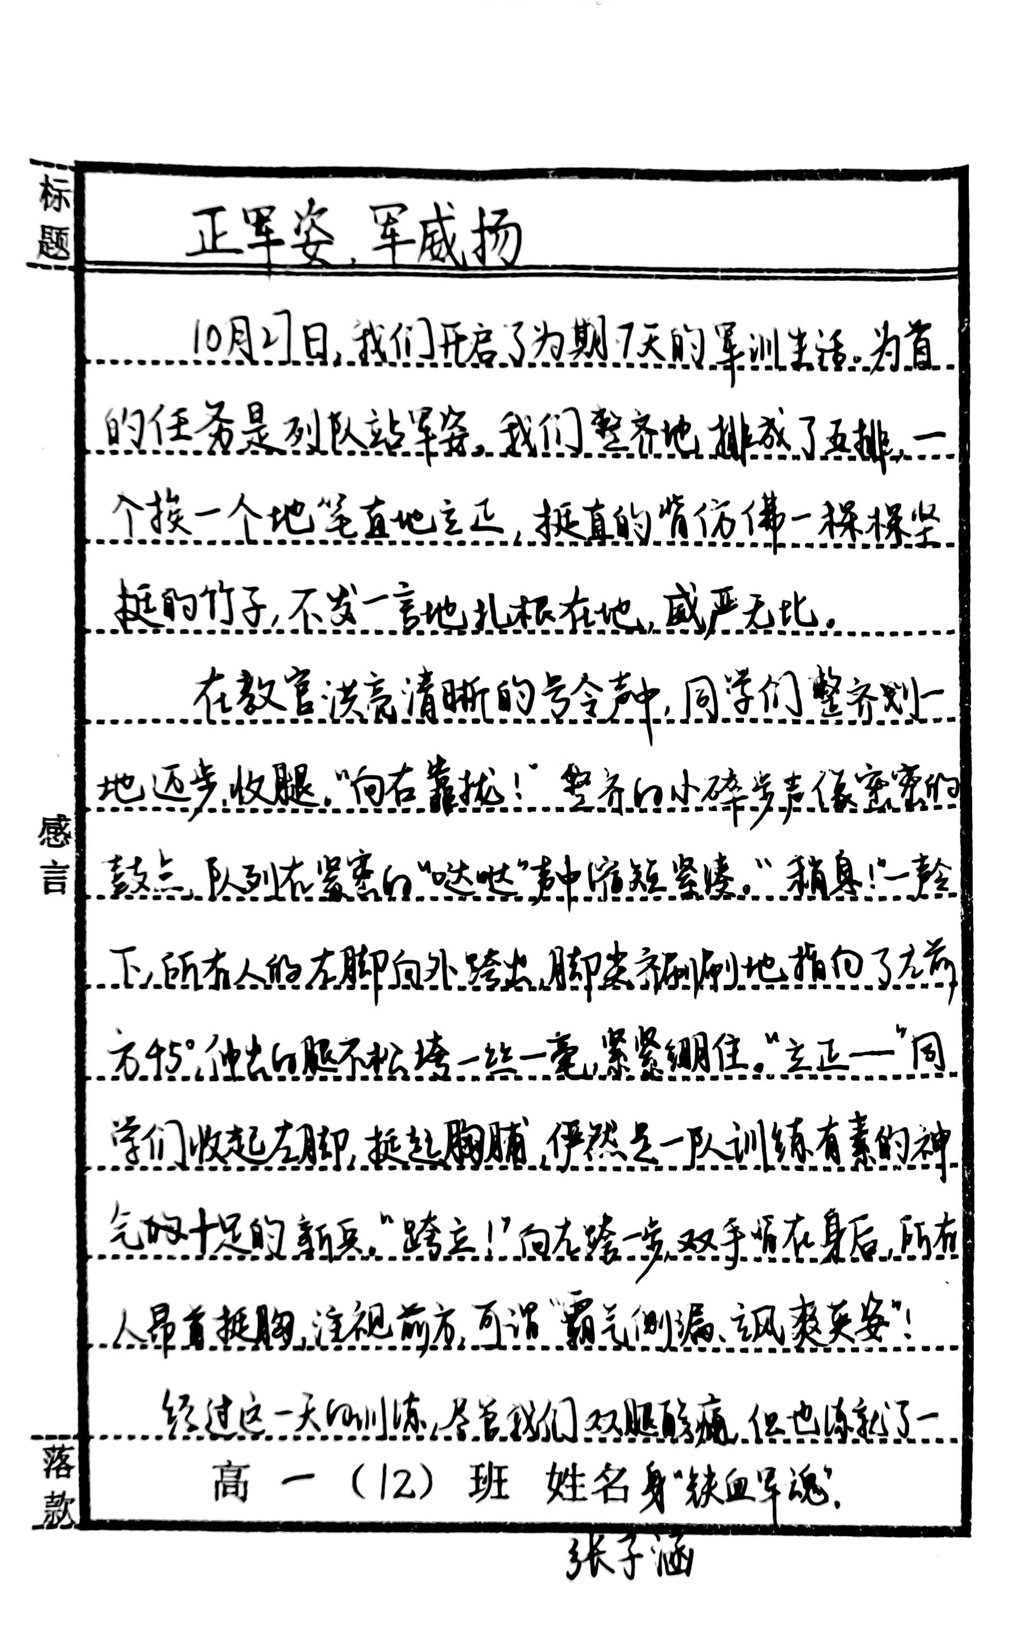 标题
正军姿，军威扬
10月27日，我们开启了为期7天的军训生活。为首
的任务是列队站军姿。我们整齐地排成了五排，一
个挨一个地笔直地立正，挺直的背仿佛一棵棵坚
挺的竹子，不发一言地扎根在地，威严无比。
在教官洪亮清晰的号令声中，同学们整齐划一
地迈步、收腿。“向右靠拢！”整齐的小碎步声像密密的
鼓点，队列在紧密的“哒哒”声中缩短紧凑。“稍息！”一声令
下，所有人的左脚向外跨出，脚尖齐刷刷地指向了左前
方45°，伸出的腿不松垮一丝一毫，紧紧绷住。“立正——”同
学们收起左脚，挺起胸脯，俨然是一队训练有素的神
气的十足的新兵。“跨立！”向左跨一步，双手背在身后，所有
人昂首挺胸，注视前方，可谓“霸气侧漏、飒爽英姿”！
经过这一天的训练，尽管我们双腿酸痛，但也练就了一
感言
落款
高一（12）班 姓名 身“铁血军魂”。
张子涵